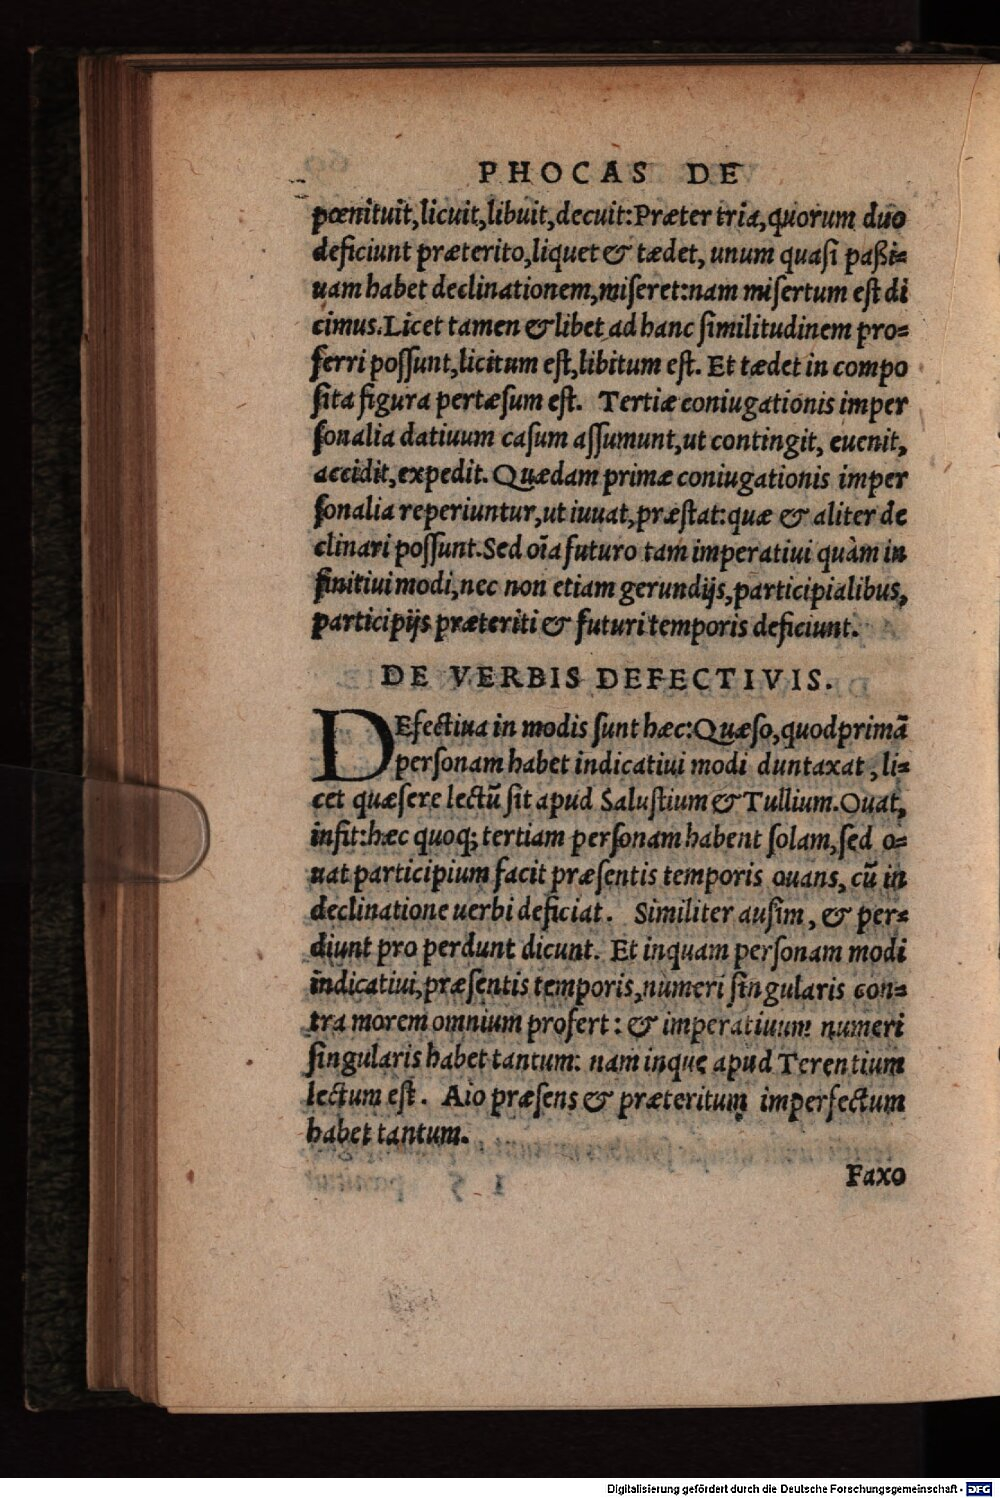 PHOCAS DE
pœnituit,licuit,libuit,decuit:Præter tria,quorum duo
deficiunt præterito,liquet & tædet, unum quaſi paßi=
uam habet declinationem,miſeret:nam miſertum eſt di
cimus.Licet tamen & libet ad hanc ſimilitudinem pro=
ferri poſſunt,licitum eſt,libitum eſt. Et tædet in compo
ſita figura pertæſum eſt. Tertiæ coniugationis imper
ſonalia datiuum caſum aſſumunt,ut contingit, euenit,
accidit,expedit. Quædam primæ coniugationis imper
ſonalia reperiuntur,ut iuuat,præſtat:quæ & aliter de
clinari poſſunt.Sed oīa futuro tam imperatiui quàm in
finitiui modi,nec non etiam gerundijs,participialibus,
participijs præteriti & futuri temporis deficiunt.
DE VERBIS DEFECTIVIS.
DEfectiua in modis ſunt hæc:Quæſo,quod primā
perſonam habet indicatiui modi duntaxat, li=
cet quæſere lectū ſit apud Saluſtium & Tullium.Ouat,
infit:hæc quoq; tertiam perſonam habent ſolam,ſed o=
uat participium facit præſentis temporis ouans, cū in
declinatione uerbi deficiat. Similiter auſim, & per=
diunt pro perdunt dicunt. Et inquam perſonam modi
indicatiui,præſentis temporis,numeri ſingularis con=
tra morem omnium profert: & imperatiuum numeri
ſingularis habet tantum: nam inque apud Terentium
lectum eſt. Aio præſens & præteritum imperfectum
habet tantum.
Faxo
Digitalisierung gefördert durch die Deutsche Forschungsgemeinschaft - DFG